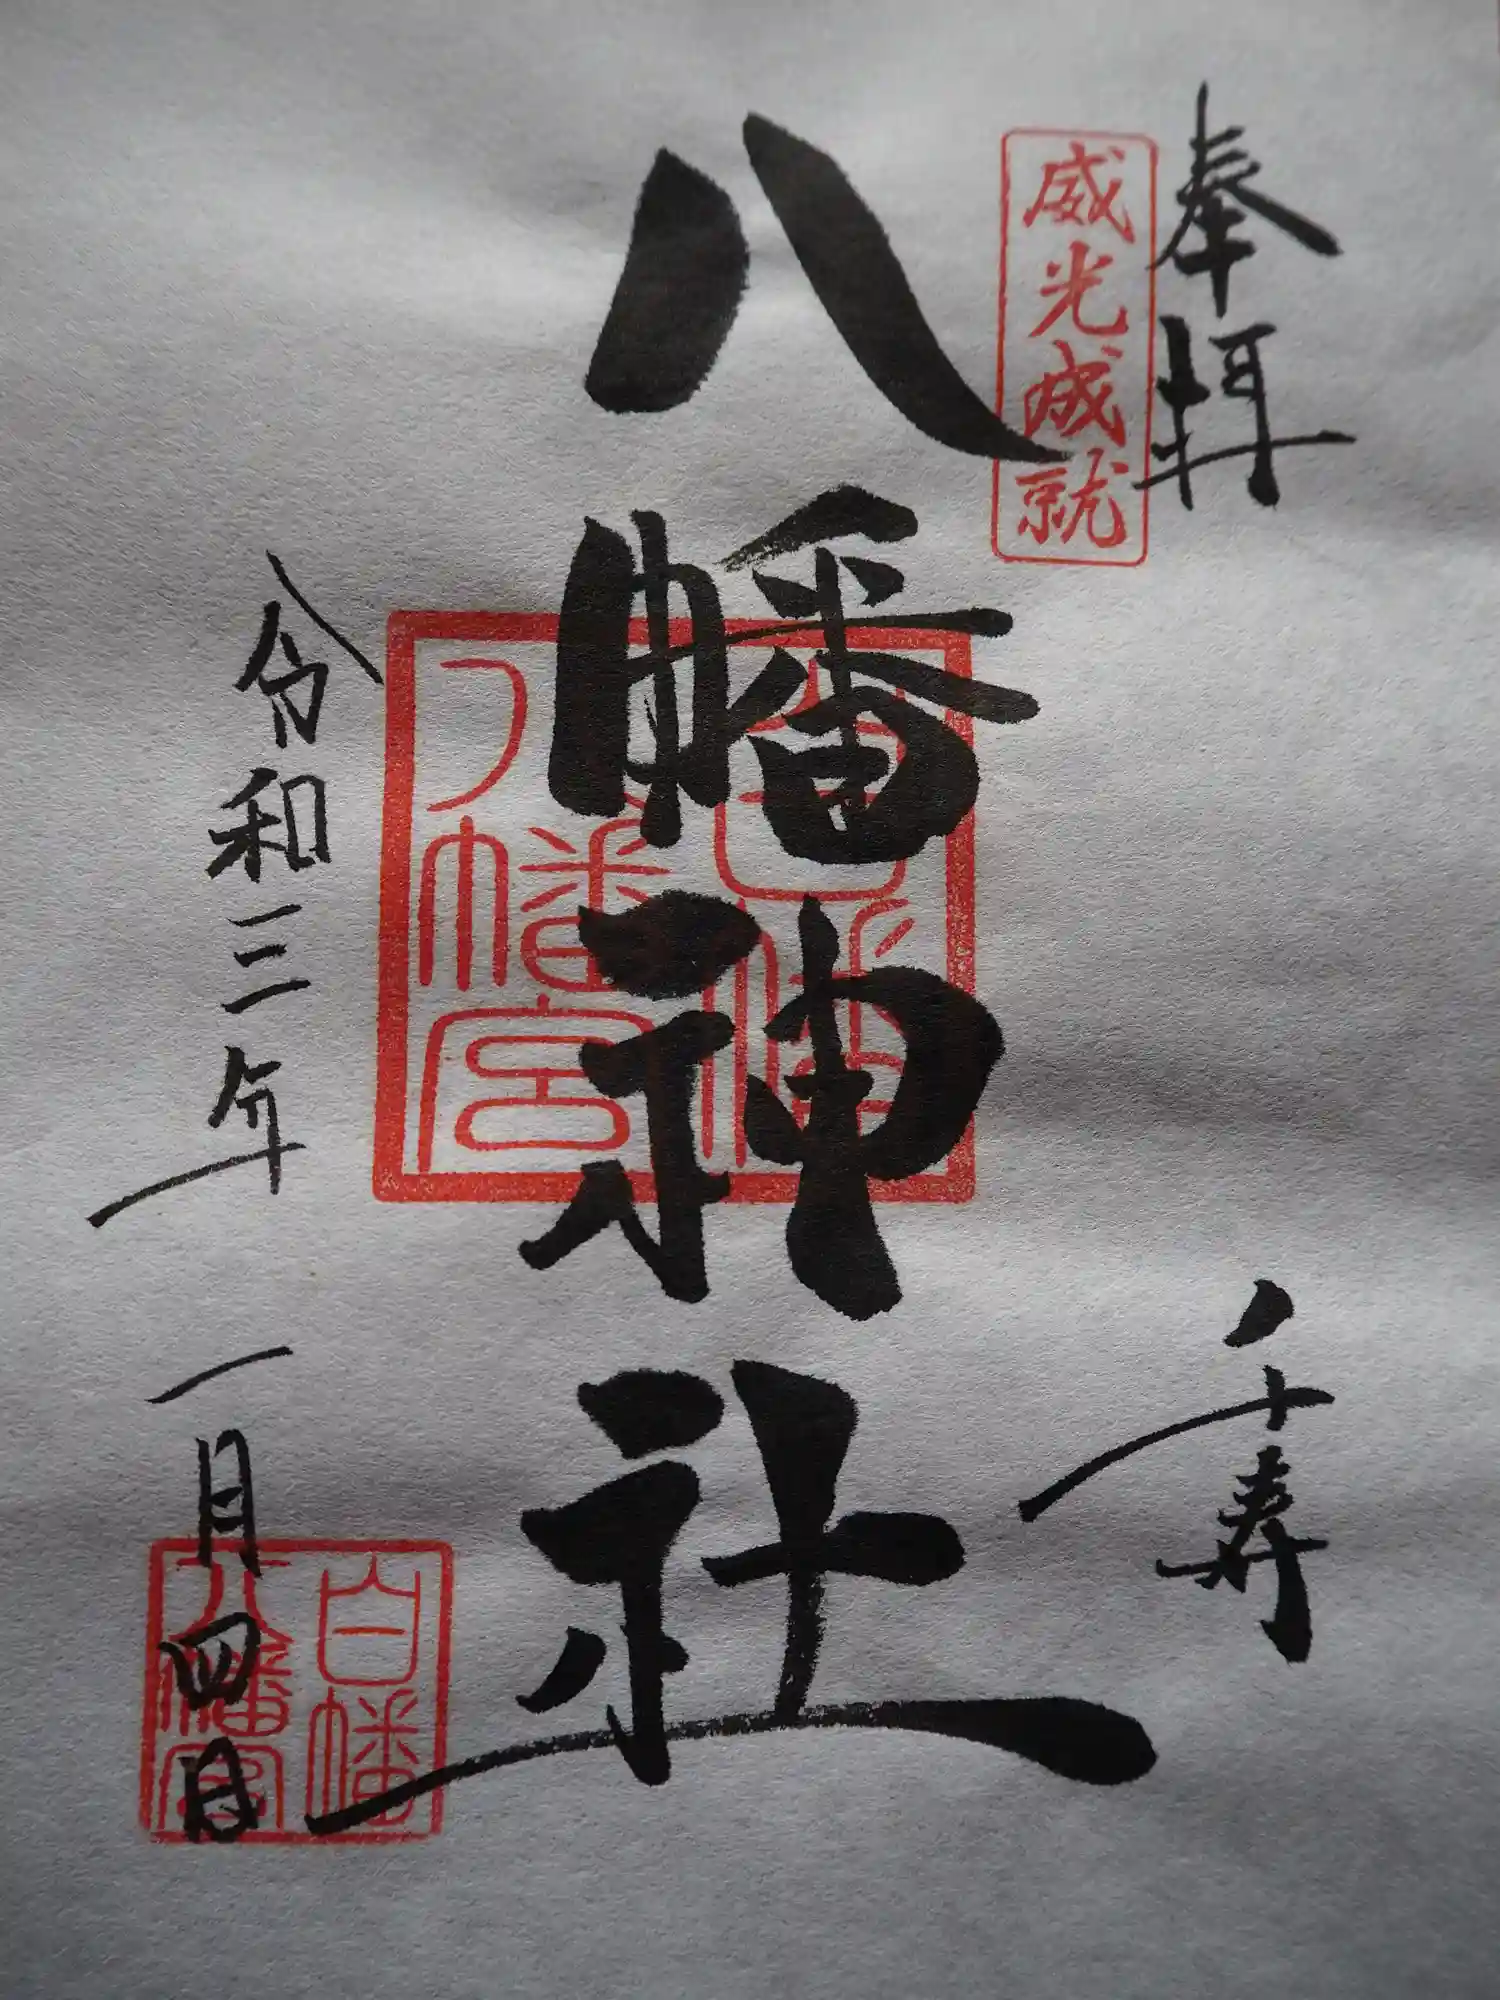 奉拝
千寿
威光成就
八幡神社
白幡
八幡宮
令和三年一月四日
白幡
八幡宮